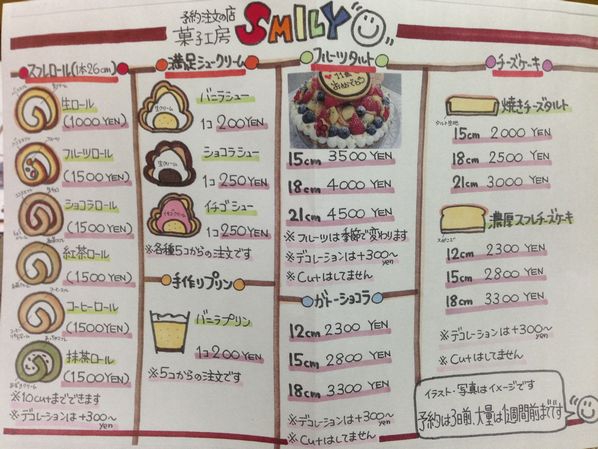 予約注文の店
菓子工房 SMILY
スフレロール(1本26cm)
生ロール
(1000YEN)
フルーツロール
(1500YEN)
ショコラロール
(1500YEN)
紅茶ロール
(1500YEN)
コーヒーロール
(1500YEN)
抹茶ロール
(1500YEN)
※10cutまでできます
※デコレーションは+300~
yen
満足シュークリーム
生クリーム
バニラシュー
1コ 200YEN
生クリーム
ショコラシュー
1コ 250YEN
イチゴシュー
1コ 250YEN
※各種5コからの注文です
手作りプリン
バニラプリン
1コ 200YEN
※5コからの注文です
フルーツタルト
15cm 3500YEN
18cm 4000YEN
21cm 4500YEN
※フルーツは季節で変わります
※デコレーションは+300~
yen
※Cutはしてません
ガトーショコラ
12cm 2300YEN
15cm 2800YEN
18cm 3300YEN
※デコレーションは+300~
yen
※Cutはしてません
チーズケーキ
焼きチーズタルト
タルト生地
15cm 2000YEN
18cm 2500YEN
21cm 3000YEN
濃厚スフレチーズケーキ
スポンジ
12cm 2300YEN
15cm 2800YEN
18cm 3300YEN
※デコレーションは+300~
yen
※Cutはしてません
イラスト・写真はイメージです
予約は3日前、大量は1週間前までです